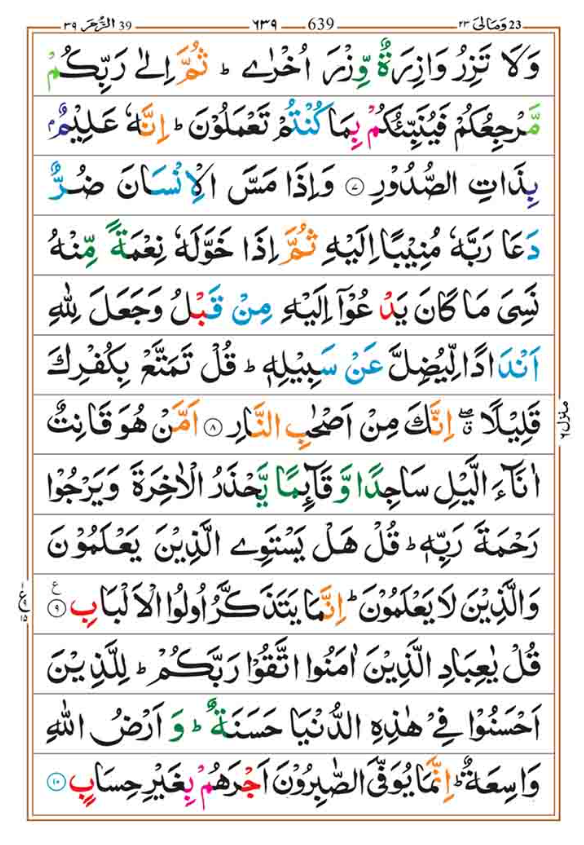 39 الزُّمَر ٣٩ ٦٣٩ 639 23 وَمَالِىَ ٢٣
وَلَا تَزِرُ وَازِرَةٌ وِّزْرَ اُخْرٰى ؕ ثُمَّ اِلٰى رَبِّكُمْ
مَّرْجِعُكُمْ فَيُنَبِّئُكُمْ بِمَا كُنْتُمْ تَعْمَلُوْنَ ؕ اِنَّهٗ عَلِيْمٌۢ
بِذَاتِ الصُّدُوْرِ ۷ وَاِذَا مَسَّ الْاِنْسَانَ ضُرٌّ
دَعَا رَبَّهٗ مُنِيْبًا اِلَيْهِ ثُمَّ اِذَا خَوَّلَهٗ نِعْمَةً مِّنْهُ
نَسِىَ مَا كَانَ يَدْعُوْۤا اِلَيْهِ مِنْ قَبْلُ وَجَعَلَ لِلّٰهِ
اَنْدَادًا لِّيُضِلَّ عَنْ سَبِيْلِهٖ ؕ قُلْ تَمَتَّعْ بِكُفْرِكَ
قَلِيْلًا ۖ اِنَّكَ مِنْ اَصْحٰبِ النَّارِ ۸ اَمَّنْ هُوَ قَانِتٌ
اٰنَآءَ الَّيْلِ سَاجِدًا وَّقَآئِمًا يَّحْذَرُ الْاٰخِرَةَ وَيَرْجُوْا
رَحْمَةَ رَبِّهٖ ؕ قُلْ هَلْ يَسْتَوِى الَّذِيْنَ يَعْلَمُوْنَ
وَالَّذِيْنَ لَا يَعْلَمُوْنَ ؕ اِنَّمَا يَتَذَكَّرُ اُولُوا الْاَلْبَابِ ۹ ع
قُلْ يٰعِبَادِ الَّذِيْنَ اٰمَنُوا اتَّقُوْا رَبَّكُمْ ؕ لِلَّذِيْنَ
اَحْسَنُوْا فِىْ هٰذِهِ الدُّنْيَا حَسَنَةٌ ؕ وَ اَرْضُ اللّٰهِ
وَاسِعَةٌ ؕ اِنَّمَا يُوَفَّى الصّٰبِرُوْنَ اَجْرَهُمْ بِغَيْرِ حِسَابٍ ۱۰
منزل ٦